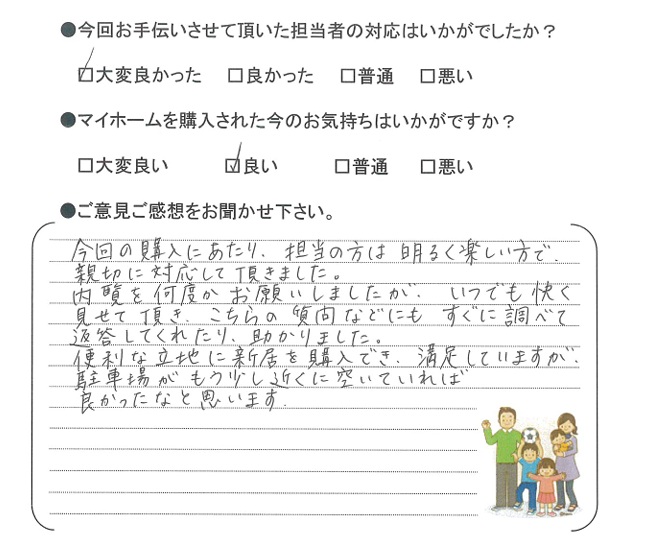 ●今回お手伝いさせて頂いた担当者の対応はいかがでしたか？
☑大変良かった □良かった □普通 □悪い
●マイホームを購入された今のお気持ちはいかがですか？
□大変良い ☑良い □普通 □悪い
●ご意見ご感想をお聞かせ下さい。
今回の購入にあたり、担当の方は明るく楽しい方で、
親切に対応して頂きました。
内覧を何度かお願いしましたが、いつでも快く
見せて頂き、こちらの質問などにもすぐに調べて
返答してくれたり、助かりました。
便利な立地に新居を購入でき、満足していますが、
駐車場がもう少し近くに空いていれば
良かったなと思います。